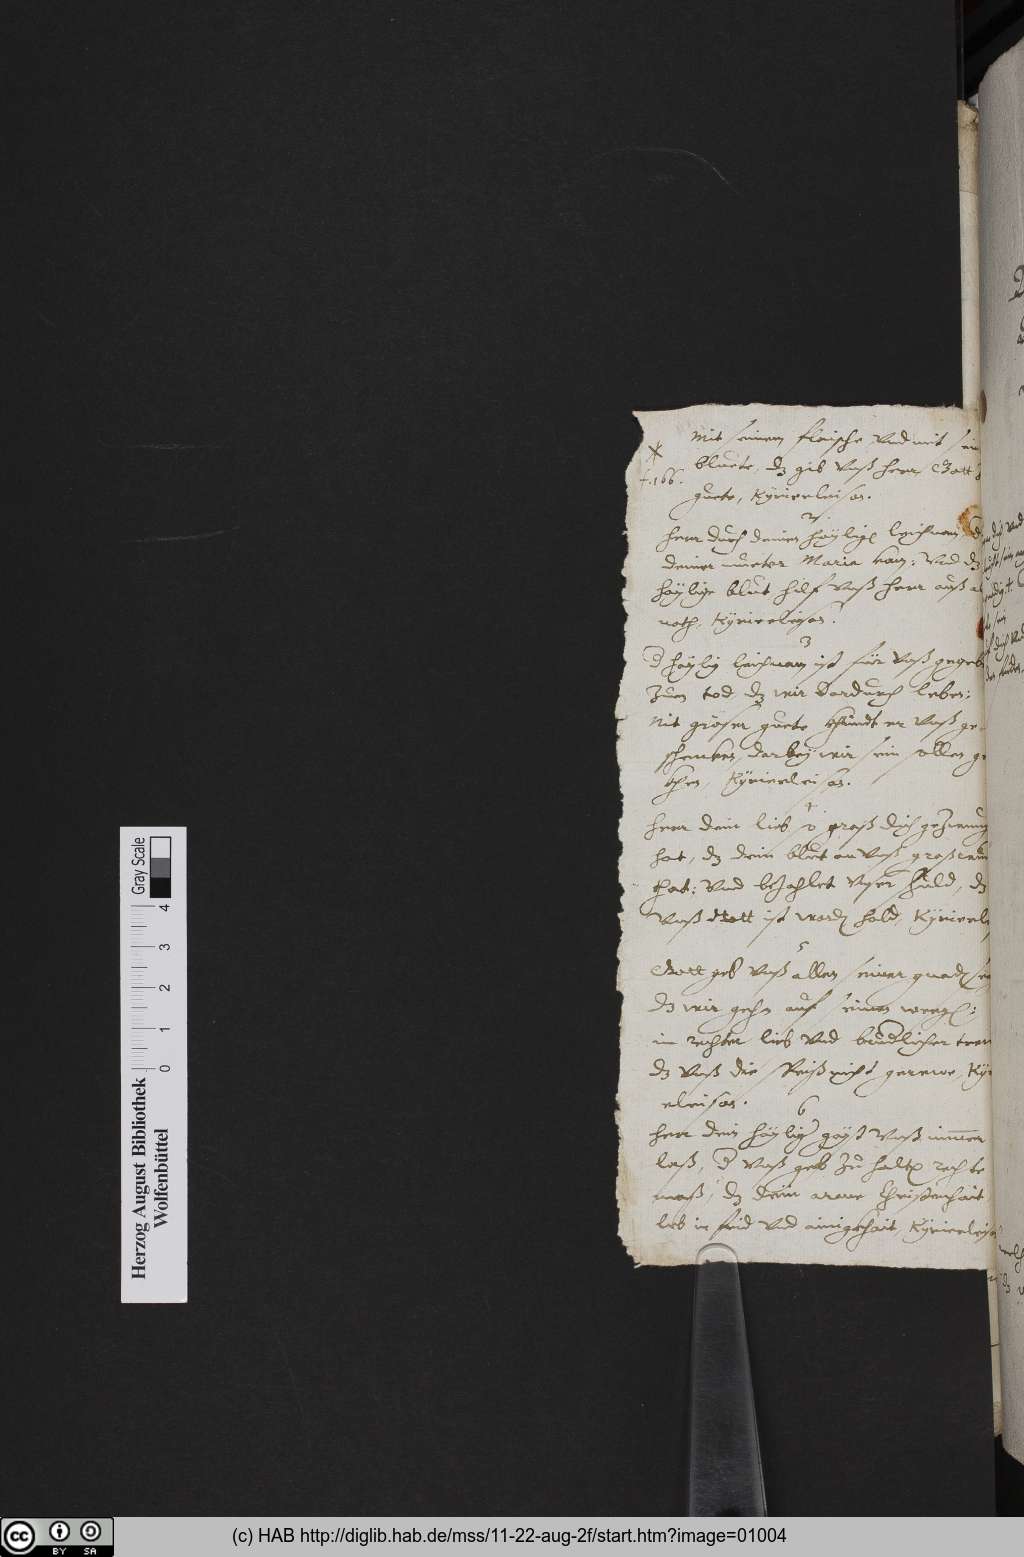 Mit seinem fleische vnd mit sein
bluete, dz gib vnß herr Gott
* f. 166.
guete, Kyrieeleison.
2
herr durch deinen häylig leichnam, d
deiner mueter Maria kam: vnd dz
häylige blut hilf vnß herr auß al
noth, Kyrieeleison.
3
d häylig leichnam ist für vnß gegeb
zuem tod, dz wir dardurch leben:
nit gröser guete khündt er vnß ge
schencken darbey wir sein sollen ge
khen, Kyrieeleison.
4
herr dein lieb so groß dich gezwung
hat, dz dein blut an vnß groß wun
that: vnd bezahlet vnser schuld, dz
vnß Gott ist word hold, Kyrieel
5
Gott geb vnß allen seiner gnad seg
dz wir gehn auf seinen weeg:
in rechter lieb vnd brüdlicher trew
dz vnß die speiß nicht gerewe, Kyri
eleison.
6
herr dein häylig gäyst vnß immer
laß, d vnß geb zu halt rechte
maß, dz dein arme Christenhäit
leb in frid vnd ainigkhait, Kyrieeleiso
Gray Scale
0 1 2 3 4
Herzog August Bibliothek
Wolfenbüttel
cc BY SA
(c) HAB http://diglib.hab.de/mss/11-22-aug-2f/start.htm?image=01004